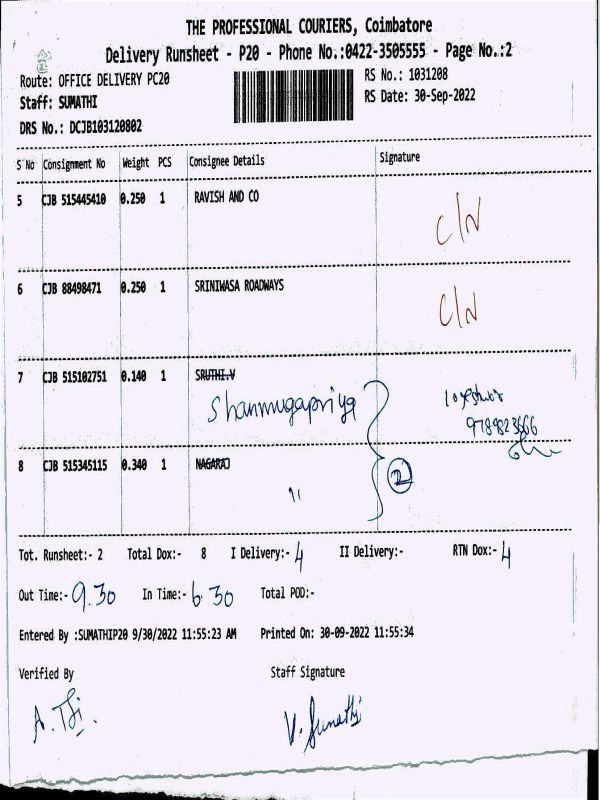 THE PROFESSIONAL COURIERS, Coimbatore
Delivery Runsheet - P20 - Phone No.:0422-3505555 - Page No.:2
Route: OFFICE DELIVERY PC20
RS No.: 1031208
Staff: SUMATHI
RS Date: 30-Sep-2022
DRS No.: DCJB103120802
S No Consignment No Weight PCS Consignee Details Signature
5 CJB 515445410 0.250 1 RAVISH AND CO C/N
6 CJB 88498471 0.250 1 SRINIWASA ROADWAYS C/N
7 CJB 515102751 0.140 1 SRUTHI.V
Shanmugapriya
9789823666
8 CJB 515345115 0.340 1 NAGARAJ
2
"
Tot. Runsheet:- 2 Total Dox:- 8 I Delivery:- 4 II Delivery:- RTN Dox:- 4
Out Time:- 9.30 In Time:- 6.30 Total POD:-
Entered By :SUMATHIP20 9/30/2022 11:55:23 AM Printed On: 30-09-2022 11:55:34
Verified By Staff Signature
V. Sumathi